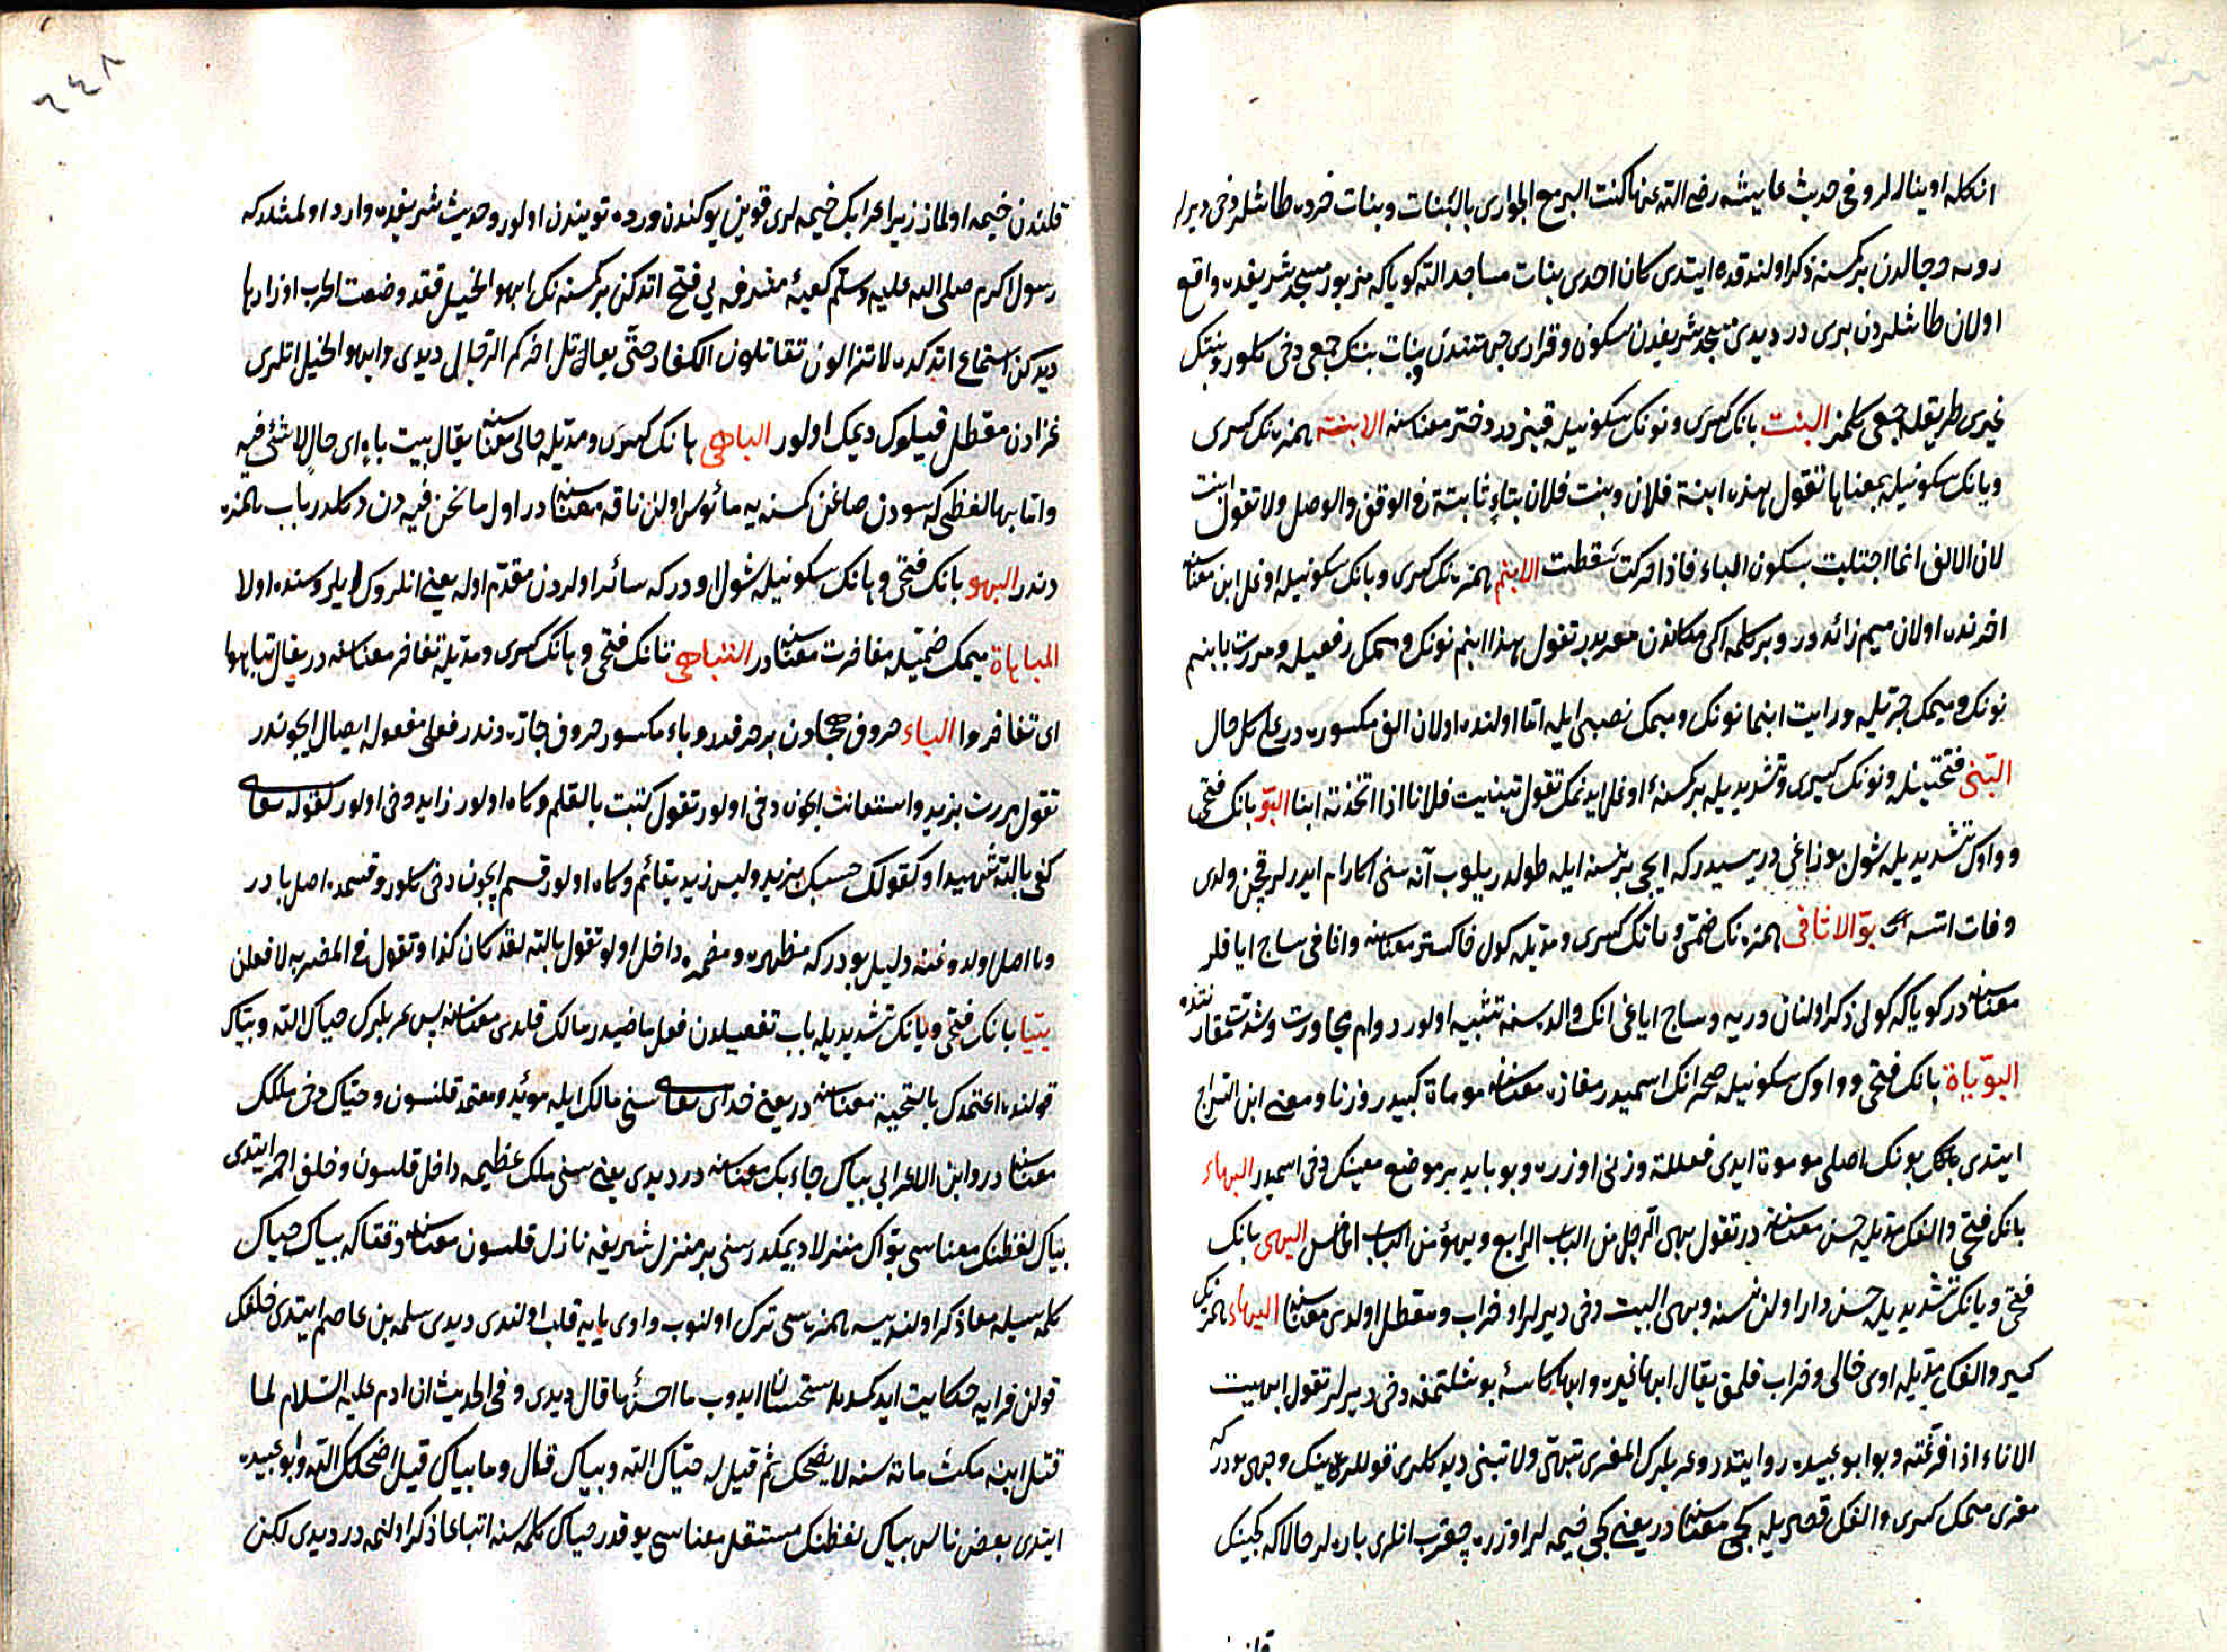 انكله اوينارلر وفى حديث عايشه رضى الله عنها كنت العب مع الجوارى بالبنات وبنات خرده طاشلره دخى ديرلر
رجالدن بر كمسنه ذكر اولندقده ايتدى كان احدى بنات مساجد الله كويا كه مزبور مسجد شريفده واقع
اولان طاشلردن برى در ديدى مسجد شريفدن سكون وقرارى جهتندن وبنات بنتك جمعى دخى كلور وبنتك
غيرى طريقله جمعى كلمز البنت بانك كسرى ونونك سكونيله قيزدر دختر معناسنه الابنة همزه نك كسرى
وبانك سكونيله بمعناها تقول هذه ابنة فلان وبنت فلان بتاء ثابتة فى الوقف والوصل ولا تقول ابنت
لان الالف انما اجتلبت بسكون الباء فاذا حركت سقطت الابنم همزه نك كسرى وبانك سكونيله اوغل ابن معناسنه
اخرنده اولان ميم زائد در وبر كلمه ايكى مكاندن معربدر تقول هذا ابنم نونك وميمك رفعيله ومررت بابنم
نونك وميمك جريله ورايت ابنما نونك وميمك نصبى ايله اما اولنده اولان الف مكسوره در على كل حال
التبنى فتحتينله ونونك كسرى وتشديديله بر كمسنه ئى اوغل ايدنمك تقول تبنيت فلانا اذا اتخذته ابنا البو بانك فتحى
وواوك تشديديله شول بوزاغى دريسيدر كه ايچى بر نسنه ايله طولدريلوب آنه سنى اكا رام ايدرلر قچن ولدى
وفات اتسه بو الاثافى همزه نك ضمى وبانك كسرى ومديله كول خاكستر معناسنه واثافى ساج اياقلر
معناسنه در كويا كه كولى ذكر اولنان دريه وساج اياغى انك والده سنه تشبيه اولور دوام مجاورت وشدت مقارنتده
البوباة بانك فتحى وواوك سكونيله صحرانك اسميدر مفازه معناسنه موماة كبيدر وزنا ومعنى ابن السراج
ايتدى بونك اصلى موموة ايدى فعللة وزنى اوزره وبوبايه بر موضع معينك دخى اسميدر البهاء
بانك فتحى والفك مديله حسن معناسنه در تقول بهى الرجل من الباب الرابع وبهؤ من الباب الخامس البهى بانك
فتحى ويانك تشديديله حسن دار اولان نسنه وبهى البيت دخى ديرلر او خراب ومعطل اولدى معناسنه الابهاء همزه نك
كسر والفك مديله اوى خالى وخراب قلمق يقال ابهاه غيره وابها كاسه ئى بوشلتمغه دخى ديرلر تقول ابهيت
الاناء اذا فرغته وبو ابو عبيده روايتدر وعربلرك المعزى تبهى ولا تبنى ديدكلرى قوللرينك وجهى بودر كه
معزى ميمك كسرى والفك قصريله كچى معناسنه در يعنى كچى خيمه لر اوزره چقرب انلرى ياره لر حالا كه كچينك
قلندن خيمه اولماز زيرا اعرابك خيمه لرى قوين يوكندن ودوه توييندن اولور وحديث شريفده وارد اولمشدر كه
رسول اكرم صلى الله عليه وسلم كعبه ئى مشرفه يى فتح اتدكن بر كمسنه نك ابهوا الخيل فقد وضعت الحرب اوزارها
ديدكن استماع اتدكده لا تزالون تقاتلون الكفار حتى يقاتل اخركم الدجال ديدى وابهوا الخيل اتلرى
غزادن معطل قيلوك ديمك اولور الباهى هانك كسرى ومديله خالى معناسنه يقال بيت باه اى خال لا شئ فيه
واما بها لفظى كه سودن صاغن كمسنه يه مأنوس اولن ناقه معناسنه در اول ما نحن فيه دن دكلدر باب همزه
دندر البهو بانك فتحى وهانك سكونيله شول اودر كه سائر اولردن مقدم اوله يعنى انلرك ايلروسنده اولا
المباهاة ميمك ضميله مفاخرت معناسنه در التباهى تانك فتحى وهانك كسرى ومديله تفاخر معناسنه در يقال تباهوا
اى تفاخروا الباء حروف هجادن بر حرفدر وباء مكسور حروف جاره دندر فعلى مفعوله ايصال ايچوندر
تقول مررت بزيد واستعانت ايچون دخى اولور تقول كتبت بالقلم وكاه اولور زايد دخى اولور كقوله تعالى
كفى بالله شهيدا وكقولك حسبك بزيد وليس زيد بقائم وكاه اولور قسم ايچون دخى كلور وقسمده اصل با در
وبا اصل ولدوغنه دليل بودر كه مظهره ومضمره داخل اولور تقول بالله لقد كان كذا وتقول فى المضمر به لافعلن
بيا بانك فتحى ويانك تشديديله باب تفعيلدن فعل ماضيدر مالك قلدى معناسنه پس عربلرك حياك الله وبياك
قولنده اعتمدك بالتحية معناسنه در يعنى خداى تعالى سنى مالك ايله مؤيد ومعتمد قلسون وحياك دخى ملكك
معناسنه در وابن الاعرابى بياك جاء بك معناسنه در ديدى يعنى سنى ملك عظيمه داخل قلسون وخلف احمر ايتدى
بياك لفظنك معناسى بواك منزلا ديمكدر سنى بر منزل شريفه نازل قلسون معناسنه وقتا كه بياك حياك
كلمه سيله معا ذكر اولنديسه همزه سى ترك اولنوب واوى يايه قلب اولندى ديدى سلمه بن عاصم ايتدى خلفك
قولن فرايه حكايت ايدكمده استحسان ايدوب ما احسن ما قال ديدى وفى الحديث ان ادم عليه السلام لما
قتل ابنه مكث مائة سنه لا يضحك ثم قيل له حياك الله وبياك قال وما بياك قيل اضحكك الله وابو عبيده
ايتدى بعض ناس بياك لفظنك مستقل معناسى يوقدر حياك كلمه سنه اتباعا ذكر اولنمشدر ديدى لكن